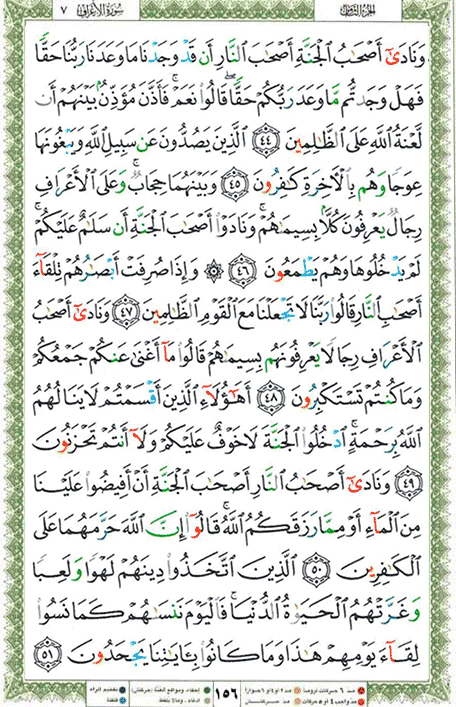 الجزء الثامن
سورة الأعراف ٧
وَنَادَىٰٓ أَصْحَٰبُ ٱلْجَنَّةِ أَصْحَٰبَ ٱلنَّارِ أَن قَدْ وَجَدْنَا مَا وَعَدَنَا رَبُّنَا حَقًّا
فَهَلْ وَجَدتُّم مَّا وَعَدَ رَبُّكُمْ حَقًّا ۖ قَالُوا۟ نَعَمْ ۚ فَأَذَّنَ مُؤَذِّنٌۢ بَيْنَهُمْ أَن
لَّعْنَةُ ٱللَّهِ عَلَى ٱلظَّٰلِمِينَ ٤٤ ٱلَّذِينَ يَصُدُّونَ عَن سَبِيلِ ٱللَّهِ وَيَبْغُونَهَا
عِوَجًا وَهُم بِٱلْءَاخِرَةِ كَٰفِرُونَ ٤٥ وَبَيْنَهُمَا حِجَابٌ ۚ وَعَلَى ٱلْأَعْرَافِ
رِجَالٌ يَعْرِفُونَ كُلًّۢا بِسِيمَىٰهُمْ ۚ وَنَادَوْا۟ أَصْحَٰبَ ٱلْجَنَّةِ أَن سَلَٰمٌ عَلَيْكُمْ ۚ
لَمْ يَدْخُلُوهَا وَهُمْ يَطْمَعُونَ ٤٦ ۞ وَإِذَا صُرِفَتْ أَبْصَٰرُهُمْ تِلْقَآءَ
أَصْحَٰبِ ٱلنَّارِ قَالُوا۟ رَبَّنَا لَا تَجْعَلْنَا مَعَ ٱلْقَوْمِ ٱلظَّٰلِمِينَ ٤٧ وَنَادَىٰٓ أَصْحَٰبُ
ٱلْأَعْرَافِ رِجَالًا يَعْرِفُونَهُم بِسِيمَىٰهُمْ قَالُوا۟ مَآ أَغْنَىٰ عَنكُمْ جَمْعُكُمْ
وَمَا كُنتُمْ تَسْتَكْبِرُونَ ٤٨ أَهَٰٓؤُلَآءِ ٱلَّذِينَ أَقْسَمْتُمْ لَا يَنَالُهُمُ
ٱللَّهُ بِرَحْمَةٍ ۚ ٱدْخُلُوا۟ ٱلْجَنَّةَ لَا خَوْفٌ عَلَيْكُمْ وَلَآ أَنتُمْ تَحْزَنُونَ
٤٩ وَنَادَىٰٓ أَصْحَٰبُ ٱلنَّارِ أَصْحَٰبَ ٱلْجَنَّةِ أَنْ أَفِيضُوا۟ عَلَيْنَا
مِنَ ٱلْمَآءِ أَوْ مِمَّا رَزَقَكُمُ ٱللَّهُ ۚ قَالُوٓا۟ إِنَّ ٱللَّهَ حَرَّمَهُمَا عَلَى
ٱلْكَٰفِرِينَ ٥٠ ٱلَّذِينَ ٱتَّخَذُوا۟ دِينَهُمْ لَهْوًا وَلَعِبًا
وَغَرَّتْهُمُ ٱلْحَيَوٰةُ ٱلدُّنْيَا ۚ فَٱلْيَوْمَ نَنسَىٰهُمْ كَمَا نَسُوا۟
لِقَآءَ يَوْمِهِمْ هَٰذَا وَمَا كَانُوا۟ بِـَٔايَٰتِنَا يَجْحَدُونَ ٥١
١٥٦